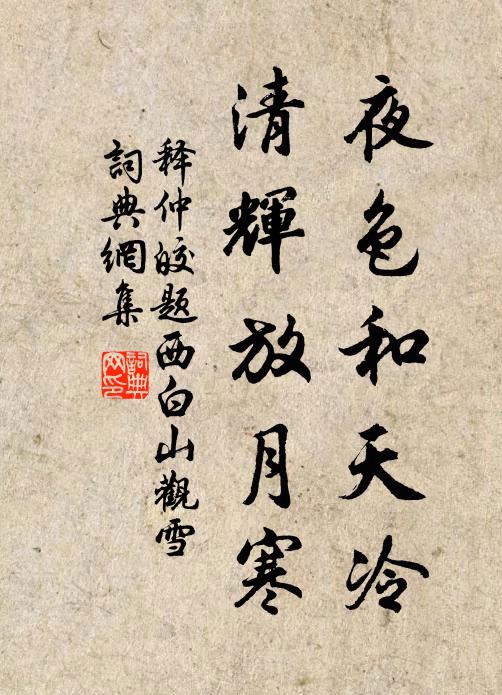 夜色和天冷
清輝放月寒
释仲皎题西白山觀雪
詞典網集
詞典網印